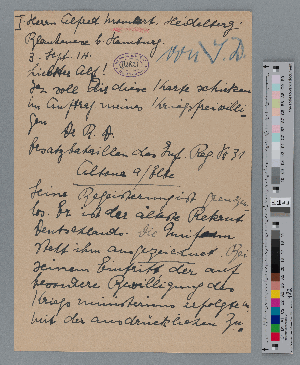 I Herrn Alfred Mombert. Heidelberg.
Blankenese b. Hamburg.
3. Sept. 14.
Liebster Alf!
Ich soll Dir diese Karte schicken
im Auftrag meines Kriegsfreiwilli-
gen
Dr R. D.
Ersatzbataillon des Inf. Reg. No 31
Altona a/Elbe
Seine Begeisterung ist grenzen-
los. Er ist der älteste Rekrut
Deutschlands. Die Uniform
steht ihm ausgezeichnet. Bei
seinem Eintritt, der auf
besondere Bewilligung des
Kriegsministeriums erfolgte u.
mit der ausdrücklichen Zu-
von I. D.